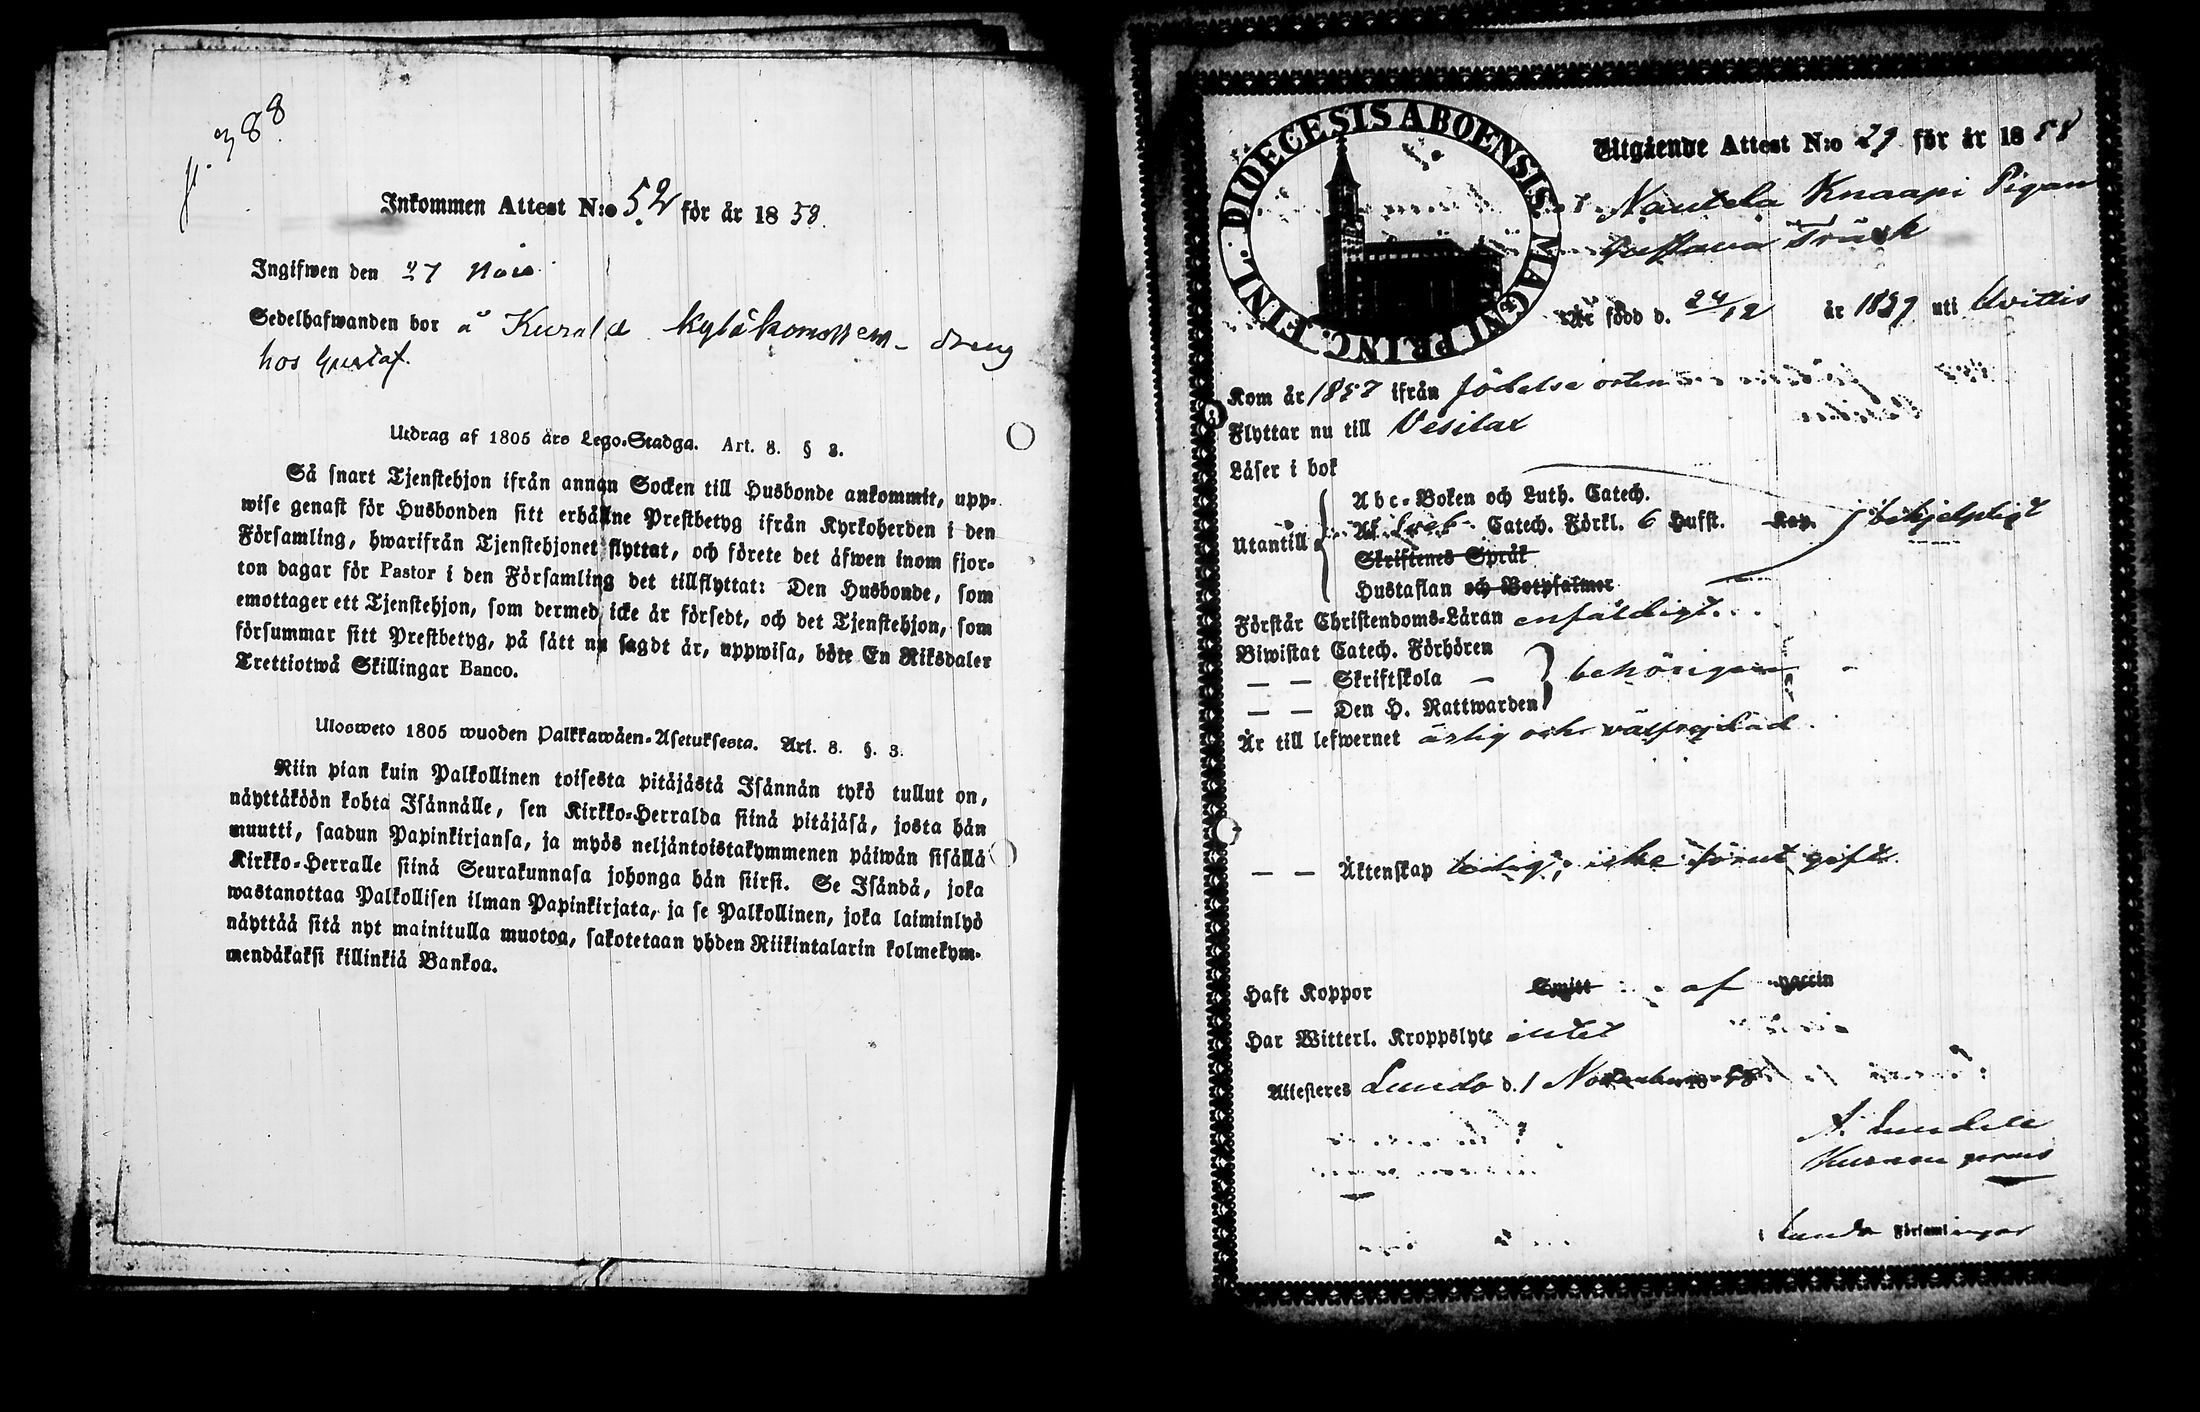 fl. 388
Inkommen Attest N:o 52 för år 1858.
Ingifwen den 27 Nov.
Sedelhafwanden bor å Kurala kyläkomossem - dreng
hos Gustaf.
Utdrag af 1805 års Lego-Stadga. Art. 8. § 3.
Så snart Tjenstehjon ifrån annan Socken till Husbonde ankommit, upp-
wise genast för Husbonden sitt erhållne Prestbetyg ifrån Kyrkoherden i den
Församling, hwarifrån Tjenstehjonet flyttat, och förete det äfwen inom fjor-
ton dagar för Pastor i den Församling det tillflyttat: Den Husbonde, som
emottager ett Tjenstehjon, som dermed icke är försedt, och det Tjenstehjon, som
försummar sitt Prestbetyg, på sätt nu sagdt är, uppwisa, böte En Riksdaler
Trettiotwå Skillingar Banco.
Ulosweto 1805 wuoden Palkkawäen-Asetuksesta. Art. 8. §. 3.
Niin pian kuin Palkollinen toisesta pitäjästä Isännän tykö tullut on,
näyttäköön kohta Isännälle, sen Kirkko-Herralda siinä pitäjäsä, josta hän
muutti, saadun Papinkirjansa, ja myös neljäntoistakymmenen päiwän sisällä
Kirkko-Herralle siinä Seurakunnasa johonga hän siirsi. Se Isändä, joka
wastanottaa Palkollisen ilman Papinkirjata, ja se Palkollinen, joka laiminlyö
näyttää sitä nyt mainitulla muotoa, sakotetaan yhden Riikintalarin kolmekym-
mendäkaksi killinkiä Bankoa.
DIOECESIS ABOENSIS MAGNI PRINC. FINL.
Utgående Attest N:o 29 för år 1858
Nautela Knaapi Pigan
Gustava Träsk
Är född d. 24/12 år 1839 uti Hvittis
Kom år 1857 ifrån födelse orten
Flyttar nu till Vesilax
Läser i bok
Abc-Boken och Luth. Catech.
Utantill Catech. Förkl. 6 Hufst. Kap. behjelpligt
Skriftenes Språk
Hustaflan och Botpsalmer
Förstår Christendoms-Läran enfäldigt.
Biwistat Catech. Förhören
— — Skriftskola — behörigen
— — Den H. Nattwarden
Är till lefwernet ärlig och välfrejdad.
— — Äktenskap ledig; icke förut gift.
Haft Koppor Smitt af vaccin
Har Witterl. Kroppslyte intet
Attesteras Lundo d. 1 November 1858
A. Lundell
Lundo Församlingar